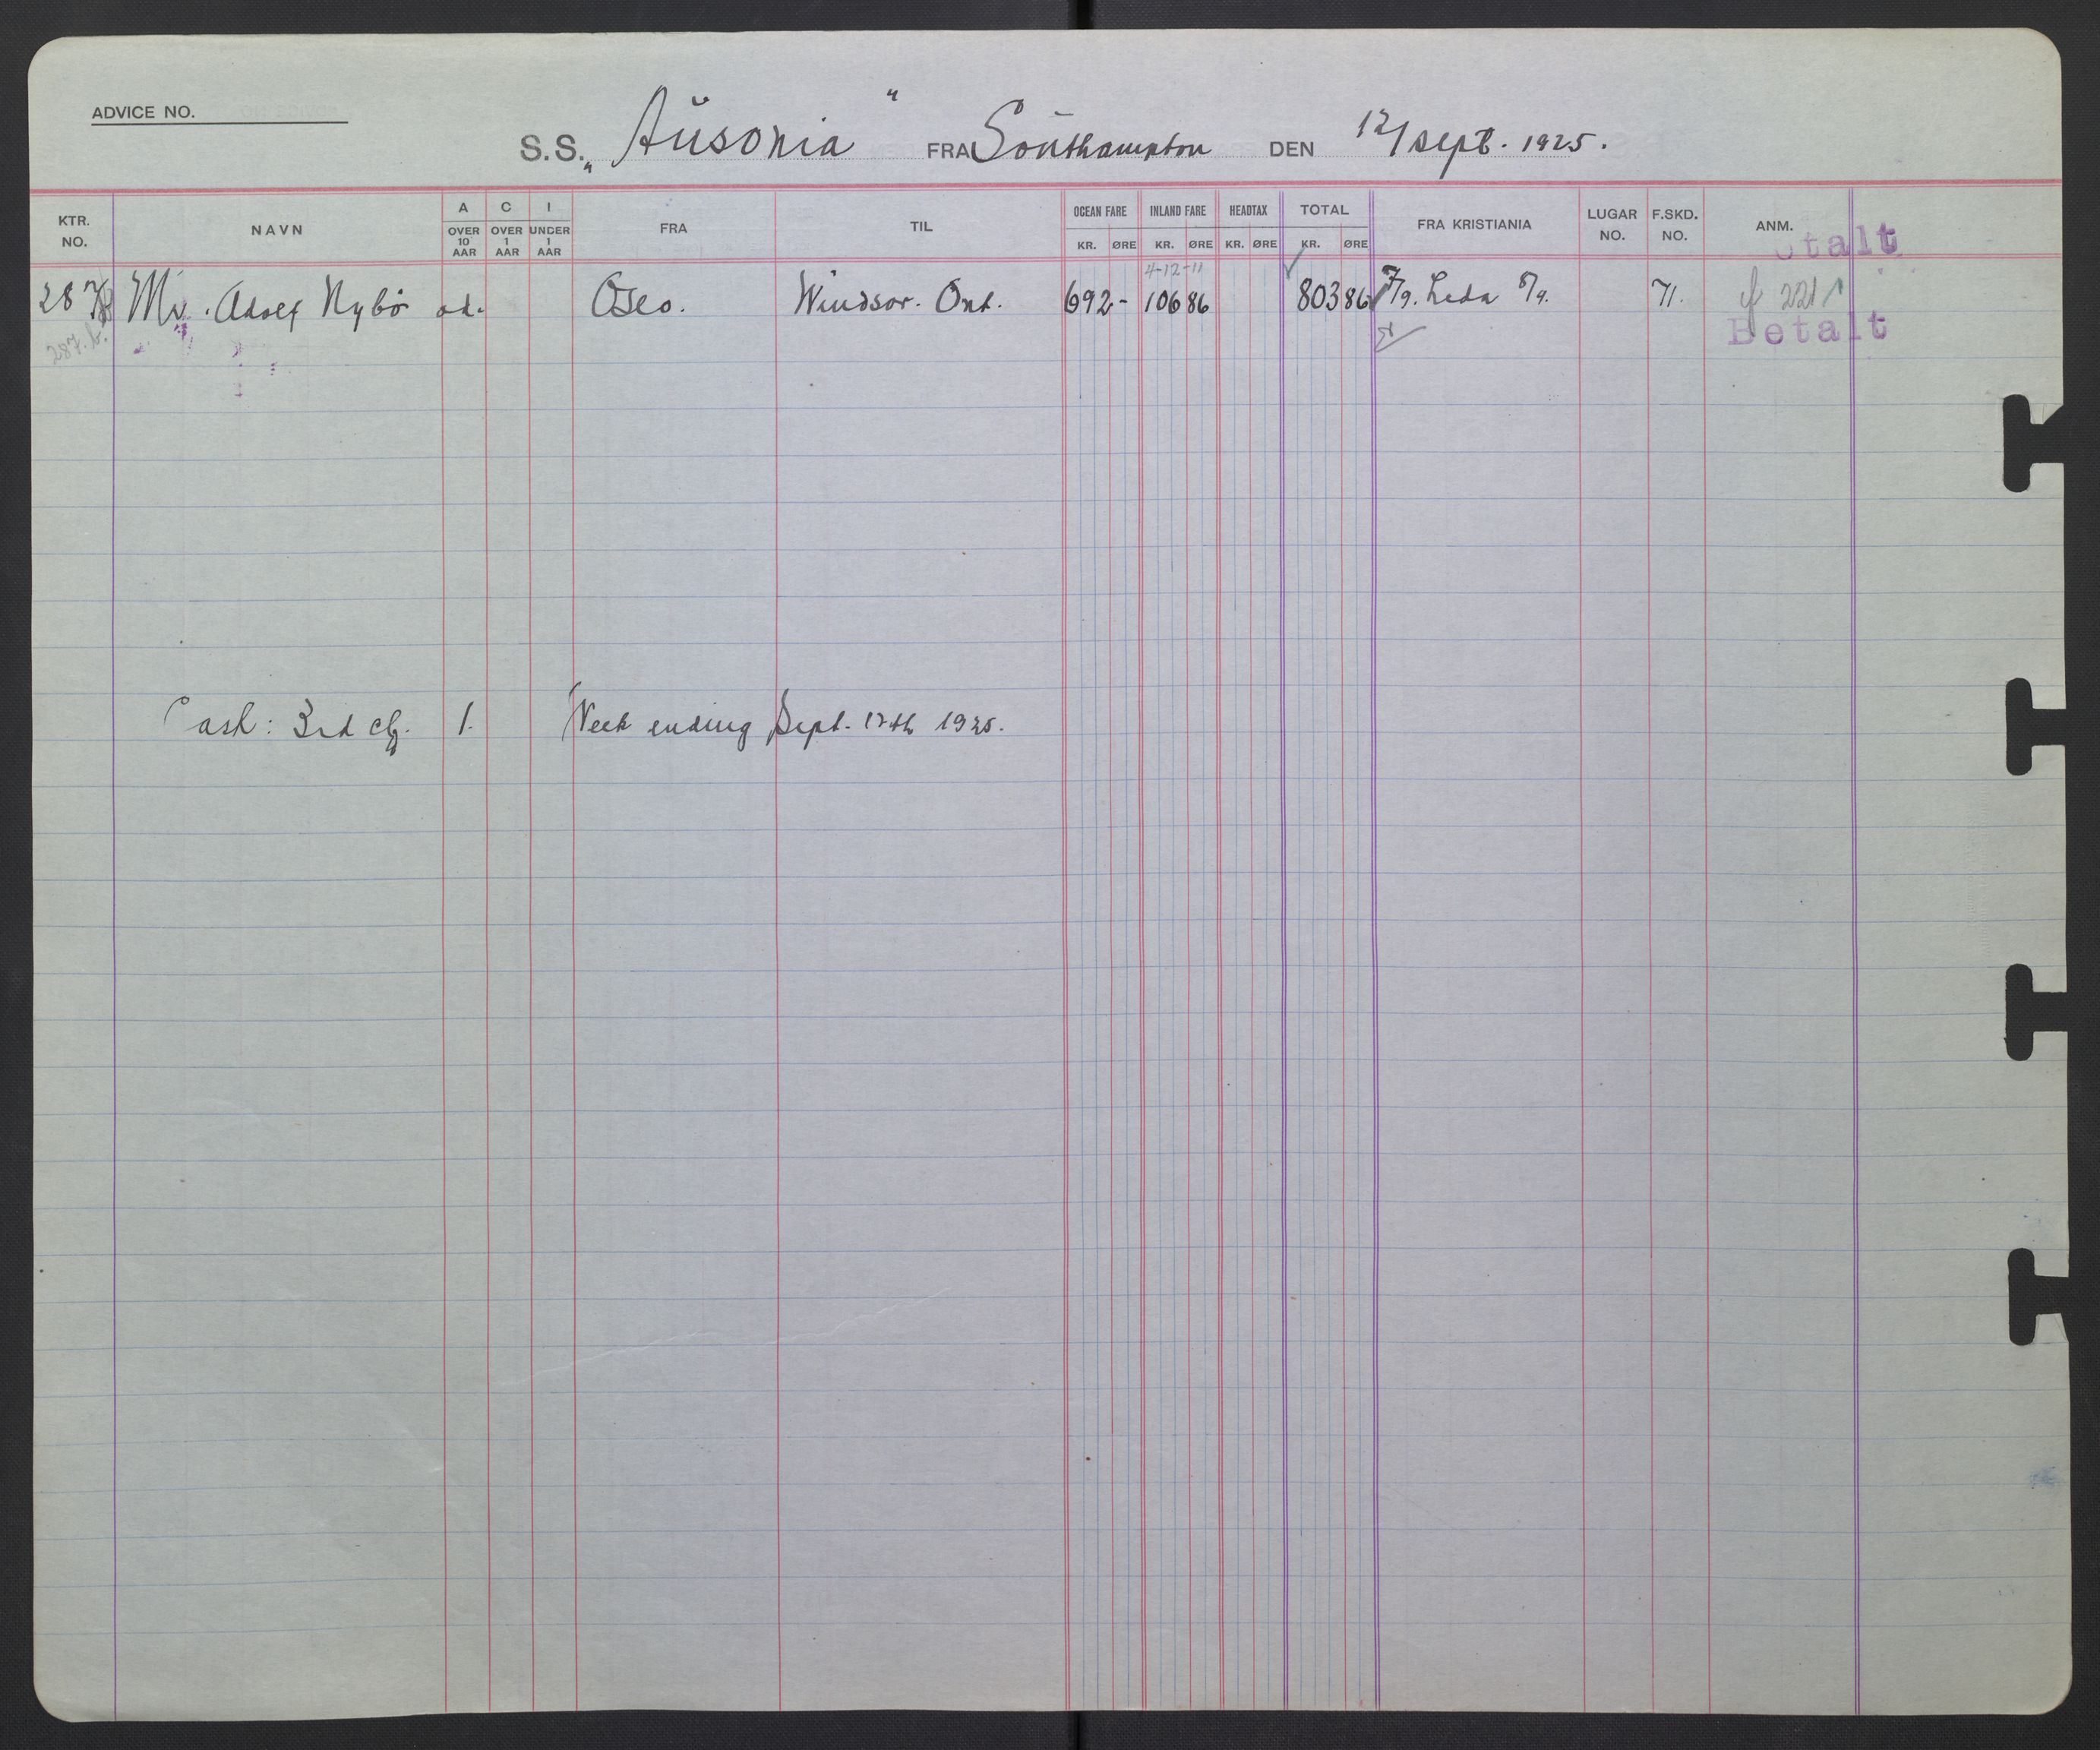 ADVICE NO.
S.S. „Aŭsonia" FRA Soŭthampton DEN 12/sept. 1925.
KTR. NO. NAVN A OVER 10 AAR C OVER 1 AAR I UNDER 1 AAR FRA TIL OCEAN FARE KR. ØRE INLAND FARE KR. ØRE HEADTAX KR. ØRE TOTAL KR. ØRE FRA KRISTIANIA LUGAR NO. F.SKD. NO. ANM.
etalt
4-12-11
Mr. Adolf Nybö ad. Oslo. Windsor. Ont. 692- 106 86 803 86 7/9. Leda 8/9. 71. 221
287.b.
Betalt
Cash: 3rd cl. 1. Week ending Sept. 12th 1925.